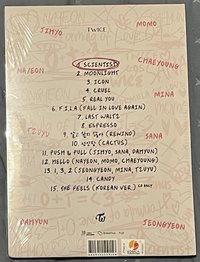 TWICE
JIHYO
MOMO
1 SCIENTIST
2 MOONLIGHT
CHAEYOUNG
NAYEON
3 ICON
4 CRUEL
MINA
5 REAL YOU
6 F.I.L.A (FALL IN LOVE AGAIN)
7 LAST WALTZ
8 ESPRESSO
TZUYU
9 (REWIND)
SANA
10 선인장 (CACTUS)
11 PUSH & PULL (JIHYO, SANA, DAHYUN)
12 HELLO (NAYEON, MOMO, CHAEYOUNG)
13 1, 3, 2 (JEONGYEON, MINA, TZUYU)
14 CANDY
15 THE FEELS (KOREAN VER.) CD ONLY
DAHYUN
JEONGYEON